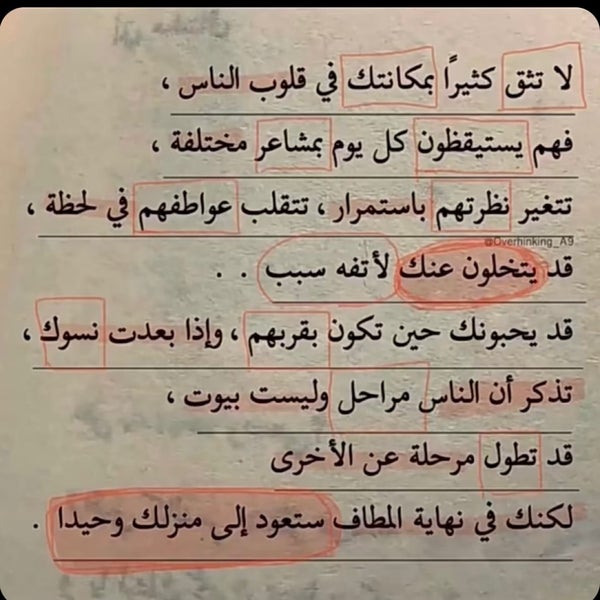 لا تثق كثيرًا بمكانتك في قلوب الناس ،
فهم يستيقظون كل يوم بمشاعر مختلفة ،
تتغير نظرتهم باستمرار ، تتقلب عواطفهم في لحظة ،
@Overhinking_A9
قد يتخلون عنك لأتفه سبب . .
قد يحبونك حين تكون بقربهم ، وإذا بعدت نسوك ،
تذكر أن الناس مراحل وليست بيوت ،
قد تطول مرحلة عن الأخرى
لكنك في نهاية المطاف ستعود إلى منزلك وحيدا .